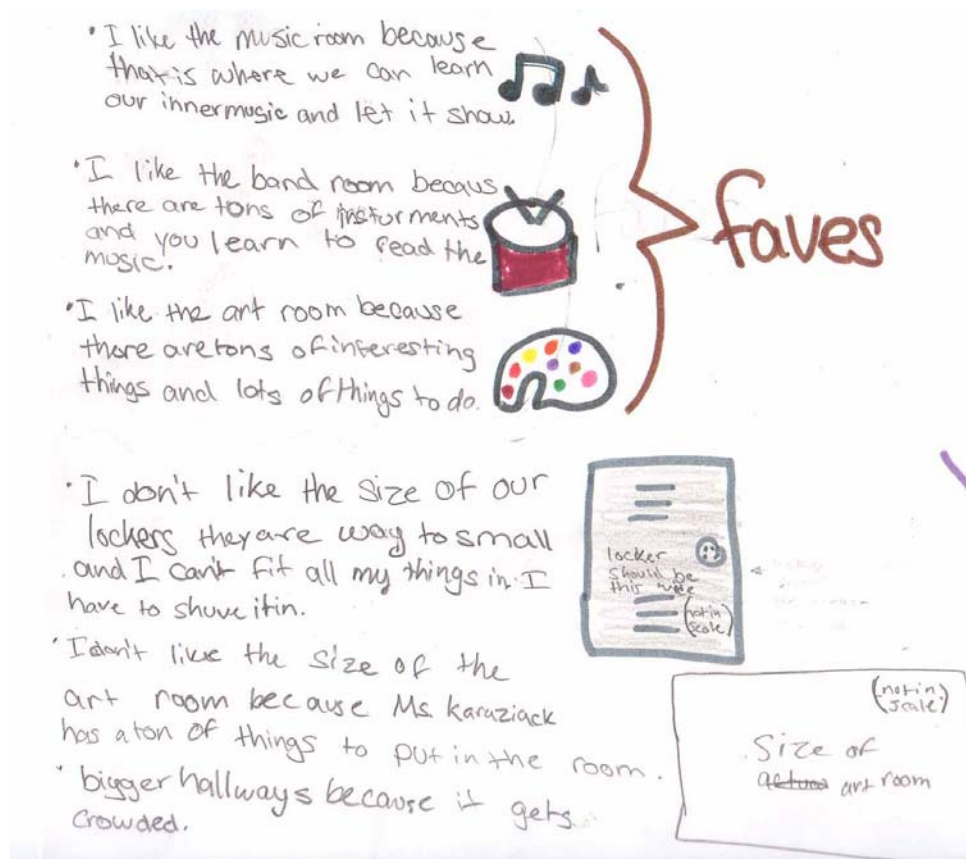 • I like the music room because
that is where we can learn
our inner music and let it show.
• I like the band room becaus
there are tons of insturments
and you learn to read the
music.
• I like the art room because
there are tons of interesting
things and lots of things to do.
faves
• I don't like the size of our
lockers they are way to small
and I can't fit all my things in. I
have to shuve it in.
locker
should be
this wide
(not in
scale)
• I don't like the size of the
art room because Ms. Karaziack
has a ton of things to put in the room.
• bigger hallways because it gets
crowded.
(not in
scale)
Size of
actual art room